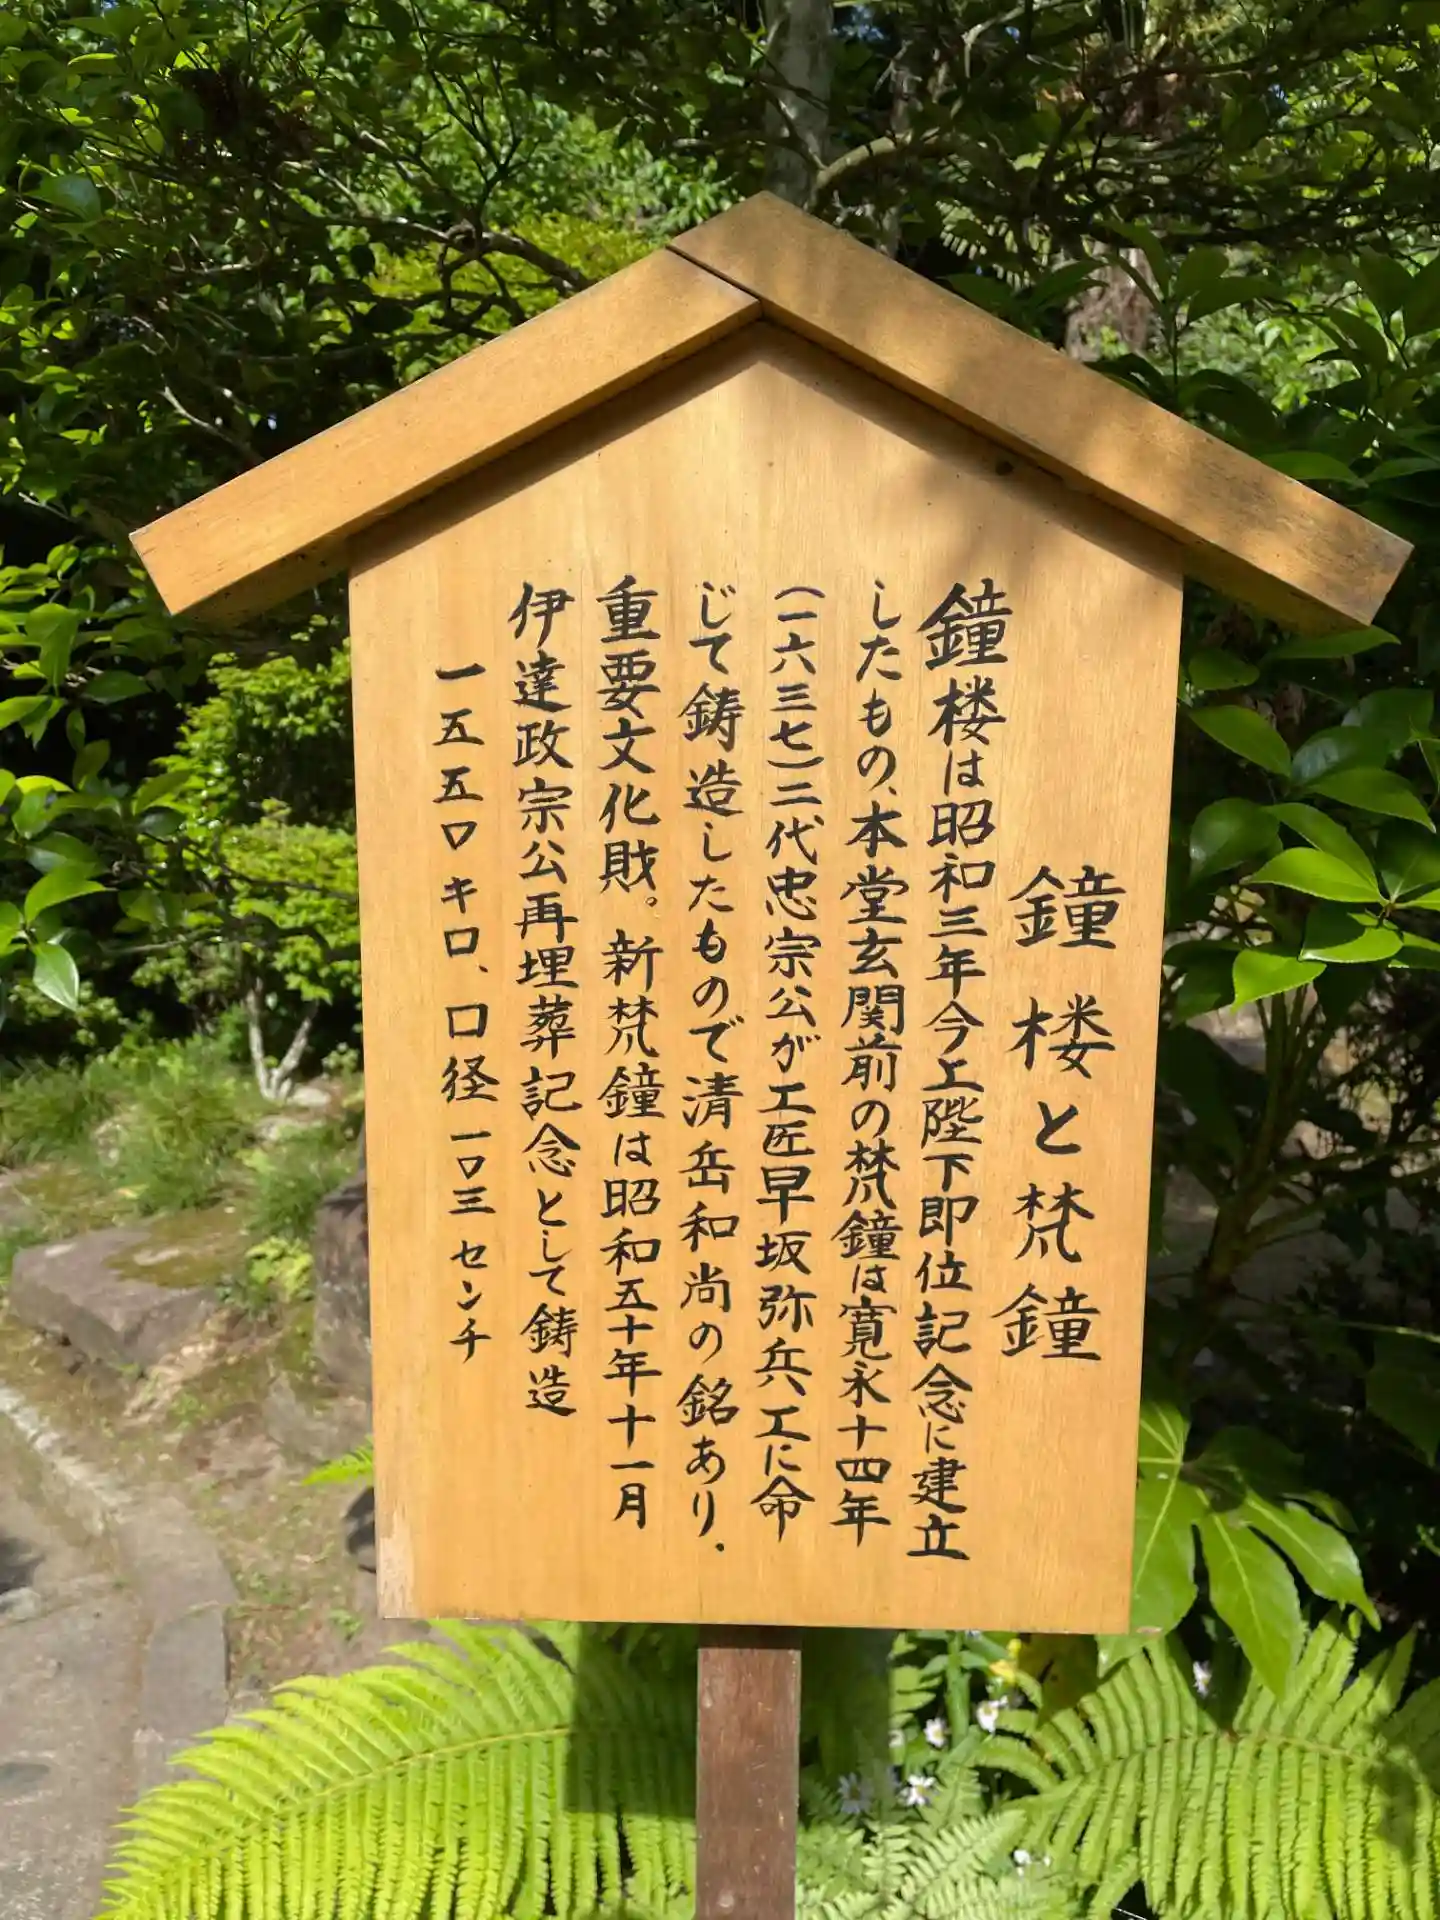 鐘楼と梵鐘
鐘楼は昭和三年今上陛下即位記念に建立
したもの、本堂玄関前の梵鐘は寛永十四年
(一六三七)二代忠宗公が工匠早坂弥兵工に命
じて鋳造したもので清岳和尚の銘あり.
重要文化財。新梵鐘は昭和五十年十一月
伊達政宗公再埋葬記念として鋳造
一五五〇キロ、口径一〇三センチ